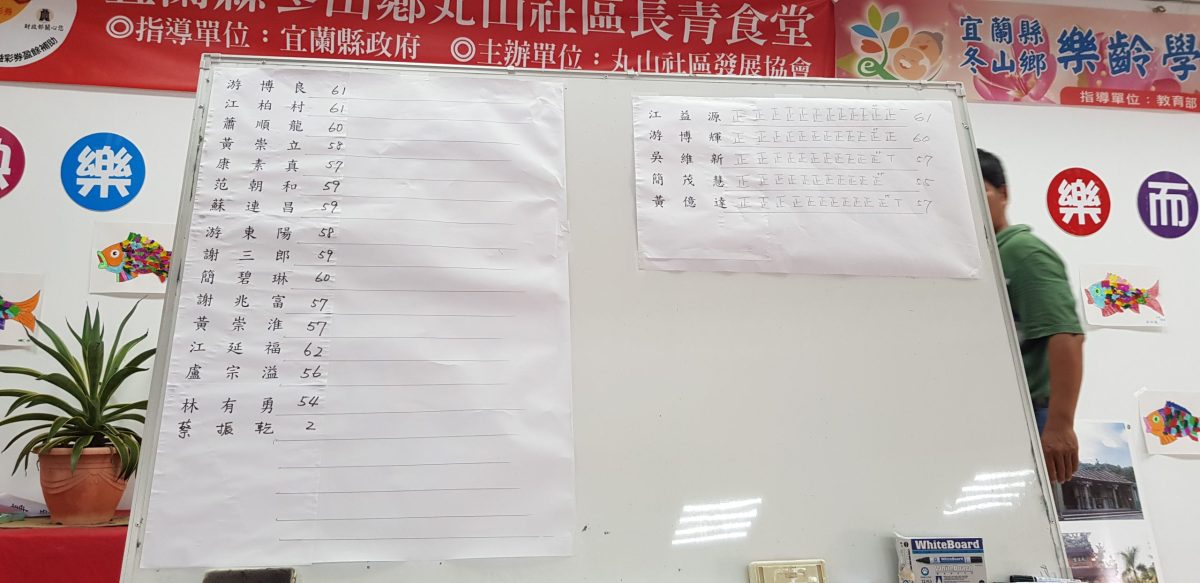 宜蘭縣冬山鄉丸山社區長青食堂
◎指導單位：宜蘭縣政府 ◎主辦單位：丸山社區發展協會
財政部關心您
宜蘭縣
冬山鄉 樂齡學
指導單位：教育部
樂
樂
而
游博良 61
江柏村 61
蕭順龍 60
黃崇立 58
康素真 57
范朝和 59
蘇連昌 59
游東陽 58
謝三郎 59
簡碧琳 60
謝兆富 57
黃崇淮 57
江延福 62
盧宗溢 56
林有勇 54
蔡振乾 2
江益源 正正正正正正正正正正正正一 61
游博輝 正正正正正正正正正正正正 60
吳維新 正正正正正正正正正正正丅 57
簡茂慧 正正正正正正正正正正正 55
黃億達 正正正正正正正正正正正丅 57
WhiteBoard